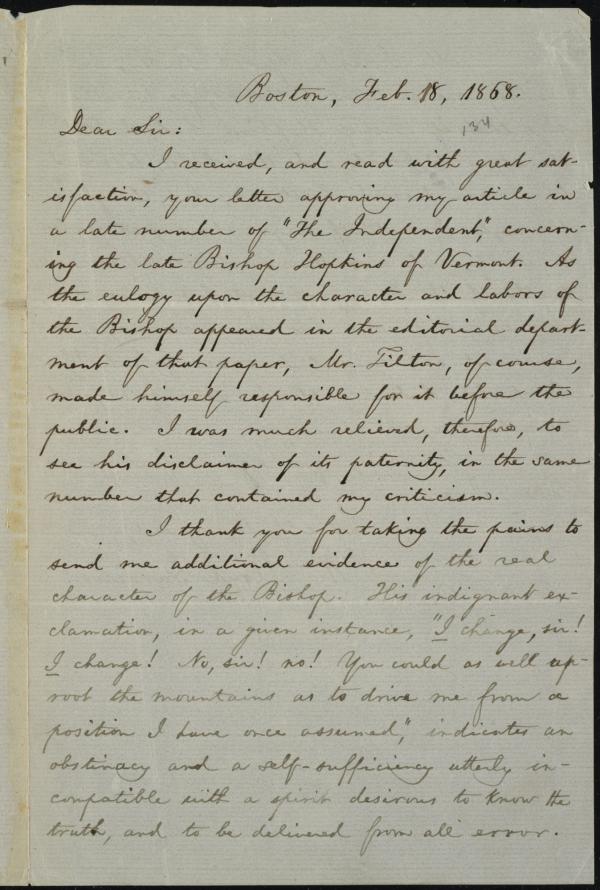 Boston, Feb. 18, 1868.
134
Dear Sir:
I received, and read with great sat-
isfaction, your letter approving my article in
a late number of "The Independent," concern-
ing the late Bishop Hopkins of Vermont. As
the eulogy upon the character and labors of
the Bishop appeared in the editorial depart-
ment of that paper, Mr. Tilton, of course,
made himself responsible for it before the
public. I was much relieved, therefore, to
see his disclaimer of its paternity, in the same
number that contained my criticism.
I thank you for taking the pains to
send me additional evidence of the real
character of the Bishop. His indignant ex-
clamation, in a given instance, "I change, sir!
I change! No, sir! no! You could as well up-
root the mountains as to drive me from a
position I have once assumed," indicates an
obstinacy and a self-sufficiency utterly in-
compatible with a spirit desirous to know the
truth, and to be delivered from all error.